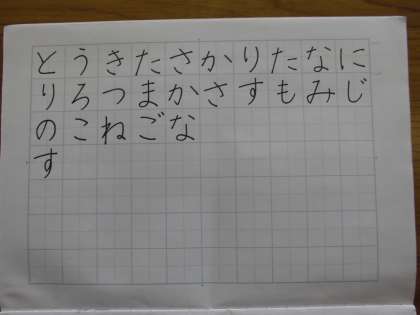 とうきたさかりたなに
りろつまかさすもみじ
のこねごな
す